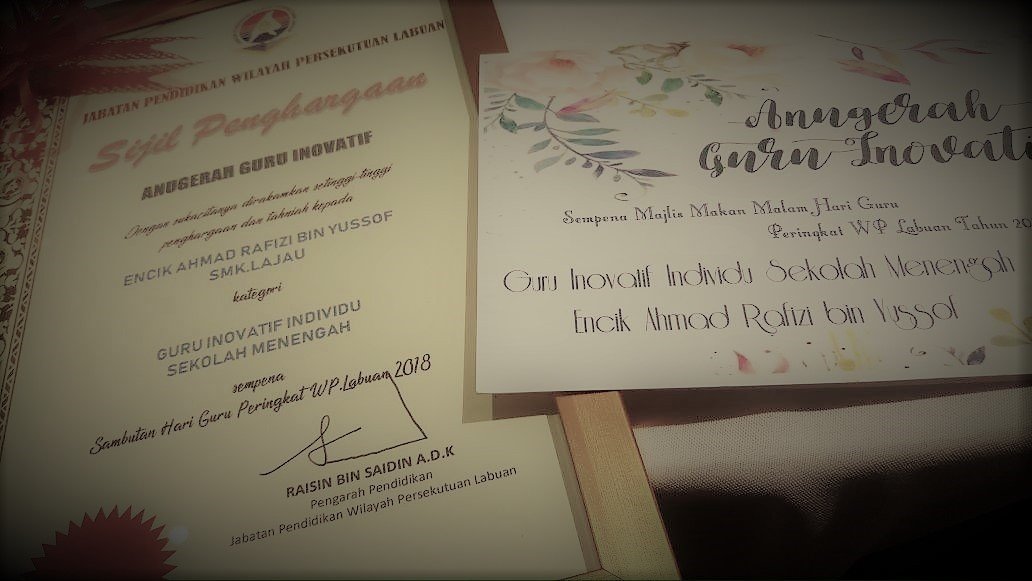 JABATAN PENDIDIKAN WILAYAH PERSEKUTUAN LABUAN
Sijil Penghargaan
ANUGERAH GURU INOVATIF
dengan sukacitanya dirakamkan setinggi-tinggi
penghargaan dan tahniah kepada
ENCIK AHMAD RAFIZI BIN YUSSOF
SMK.LAJAU
kategori
GURU INOVATIF INDIVIDU
SEKOLAH MENENGAH
sempena
Sambutan Hari Guru Peringkat WP.Labuan 2018
RAISIN BIN SAIDIN A.D.K
Pengarah Pendidikan
Jabatan Pendidikan Wilayah Persekutuan Labuan
Anugerah
Guru Inovati
Sempena Majlis Makan Malam Hari Guru
Peringkat WP Labuan Tahun 20
Guru Inovatif Individu Sekolah Menengah
Encik Ahmad Rafizi bin Yussof